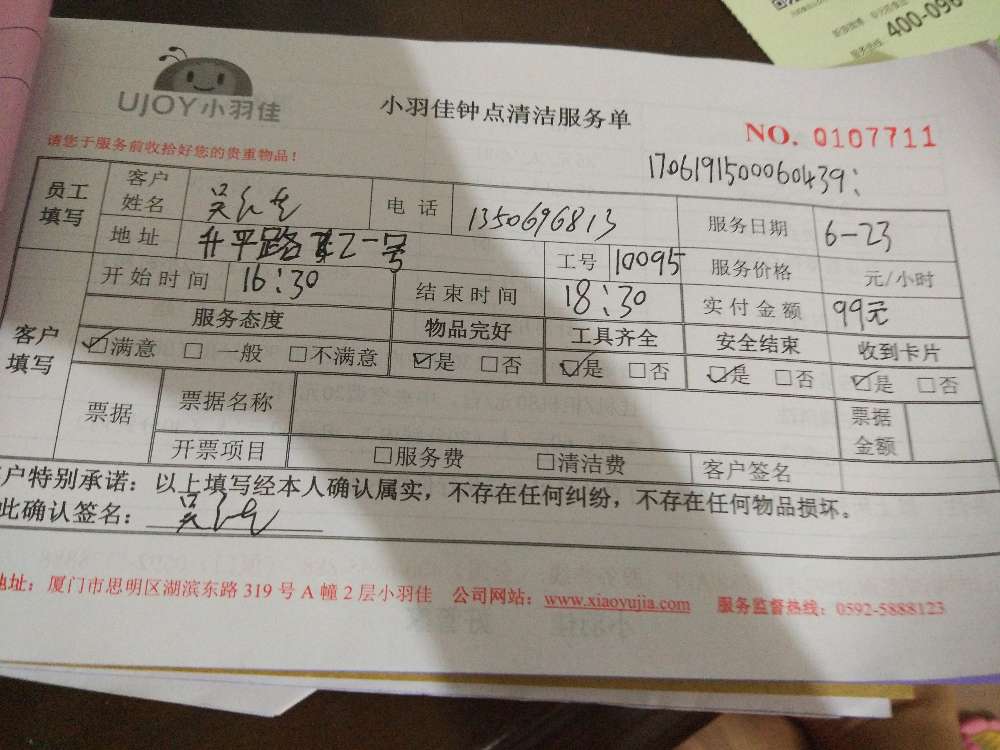 400-096
UJOY小羽佳
小羽佳钟点清洁服务单
NO. 0107711
请您于服务前收拾好您的贵重物品！
1706191500060439:
员工填写 客户姓名 吴 电话 1350696813 服务日期 6-23
地址 升平路 2-1号 工号 10095 服务价格 元/小时
开始时间 16:30 结束时间 18:30 实付金额 99元
客户填写 服务态度 物品完好 工具齐全 安全结束 收到卡片
☑满意 □一般 □不满意 ☑是 □否 ☑是 □否 ☑是 □否 ☑是 □否
票据 票据名称 票据金额
开票项目 □服务费 □清洁费 客户签名
户特别承诺：以上填写经本人确认属实，不存在任何纠纷，不存在任何物品损坏。
此确认签名： 吴
地址：厦门市思明区湖滨东路 319 号 A 幢 2 层小羽佳 公司网站：www.xiaoyujia.com 服务监督热线：0592-5888123